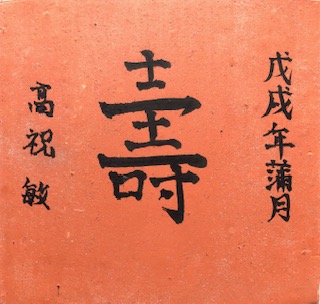 戊戌年蒲月
壽
高祝敏